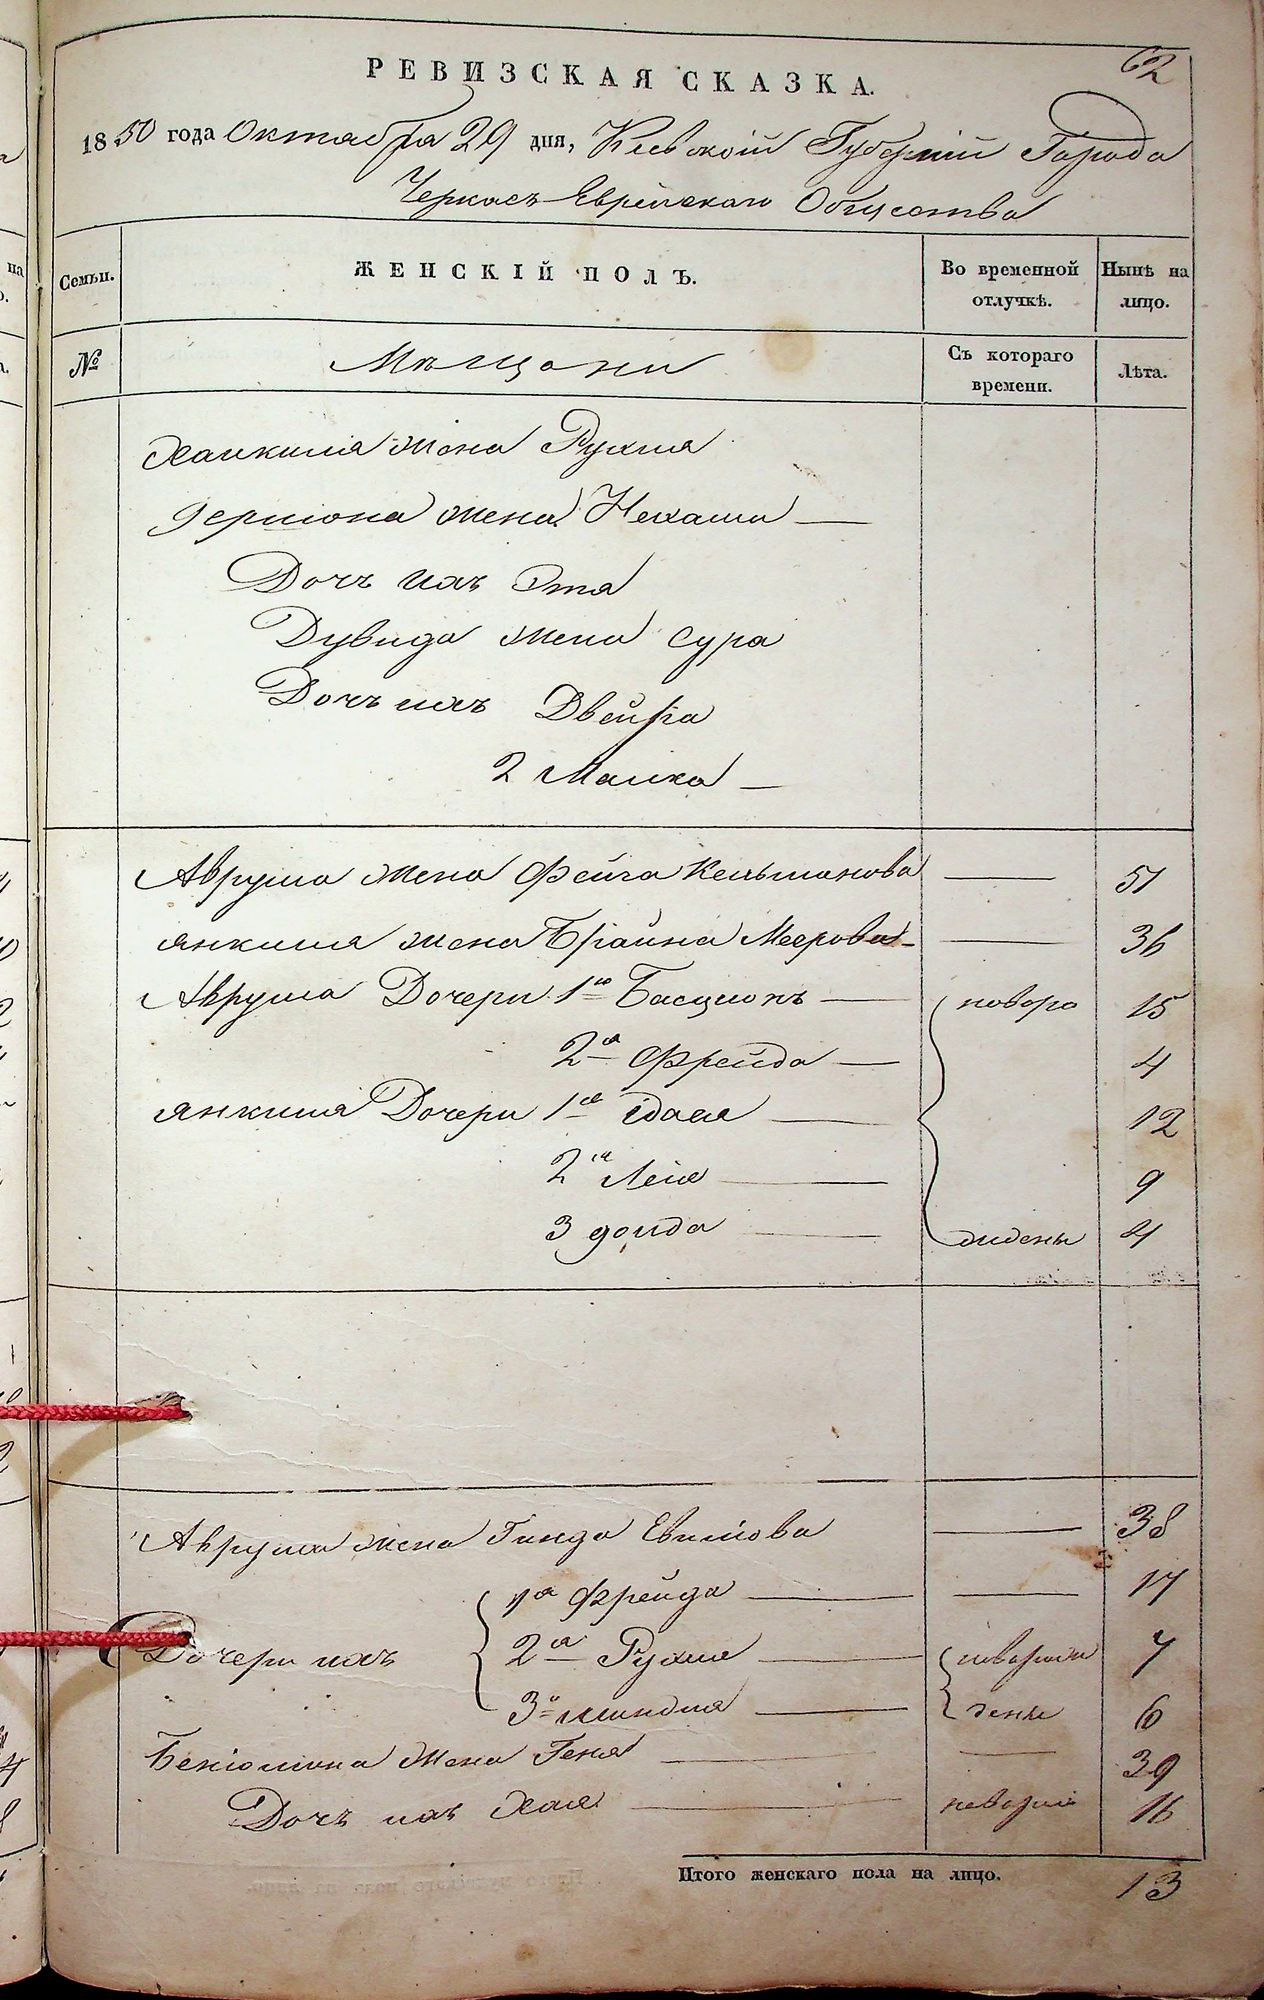 62
РЕВИЗСКАЯ СКАЗКА.
1850 года Октября 29 дня, Кіевской Губерніи Города
Черкасъ Еврейскаго Общества
Семьи. ЖЕНСКІЙ ПОЛЪ. Во временной отлучкѣ. Нынѣ на лицо.
№ Мѣщани Съ котораго времени. Лѣта.
Хаикиля жена Рухля
Гершона жена Нехама —
Дочь ихъ Этя
Дувида жена Сура
Дочь ихъ Двейра
2 Малка —
Аврума жена Фейга Кельманова — 51
Янкиля жена Брайна Меерова — 36
Аврума Дочери 1я Басционъ — новоро 15
2я Фрейда — 4
Янкиля Дочери 1я Хася — 12
2я Лея — 9
3 — ждены 4
Аврума жена Гинда — 38
1я Фрейда — 17
Дочери ихъ 2я Рухля — новорож 7
3я — дены 6
Бениомина жена Геня — 39
Дочь ихъ Хая — 16
Итого женскаго пола на лицо. 13